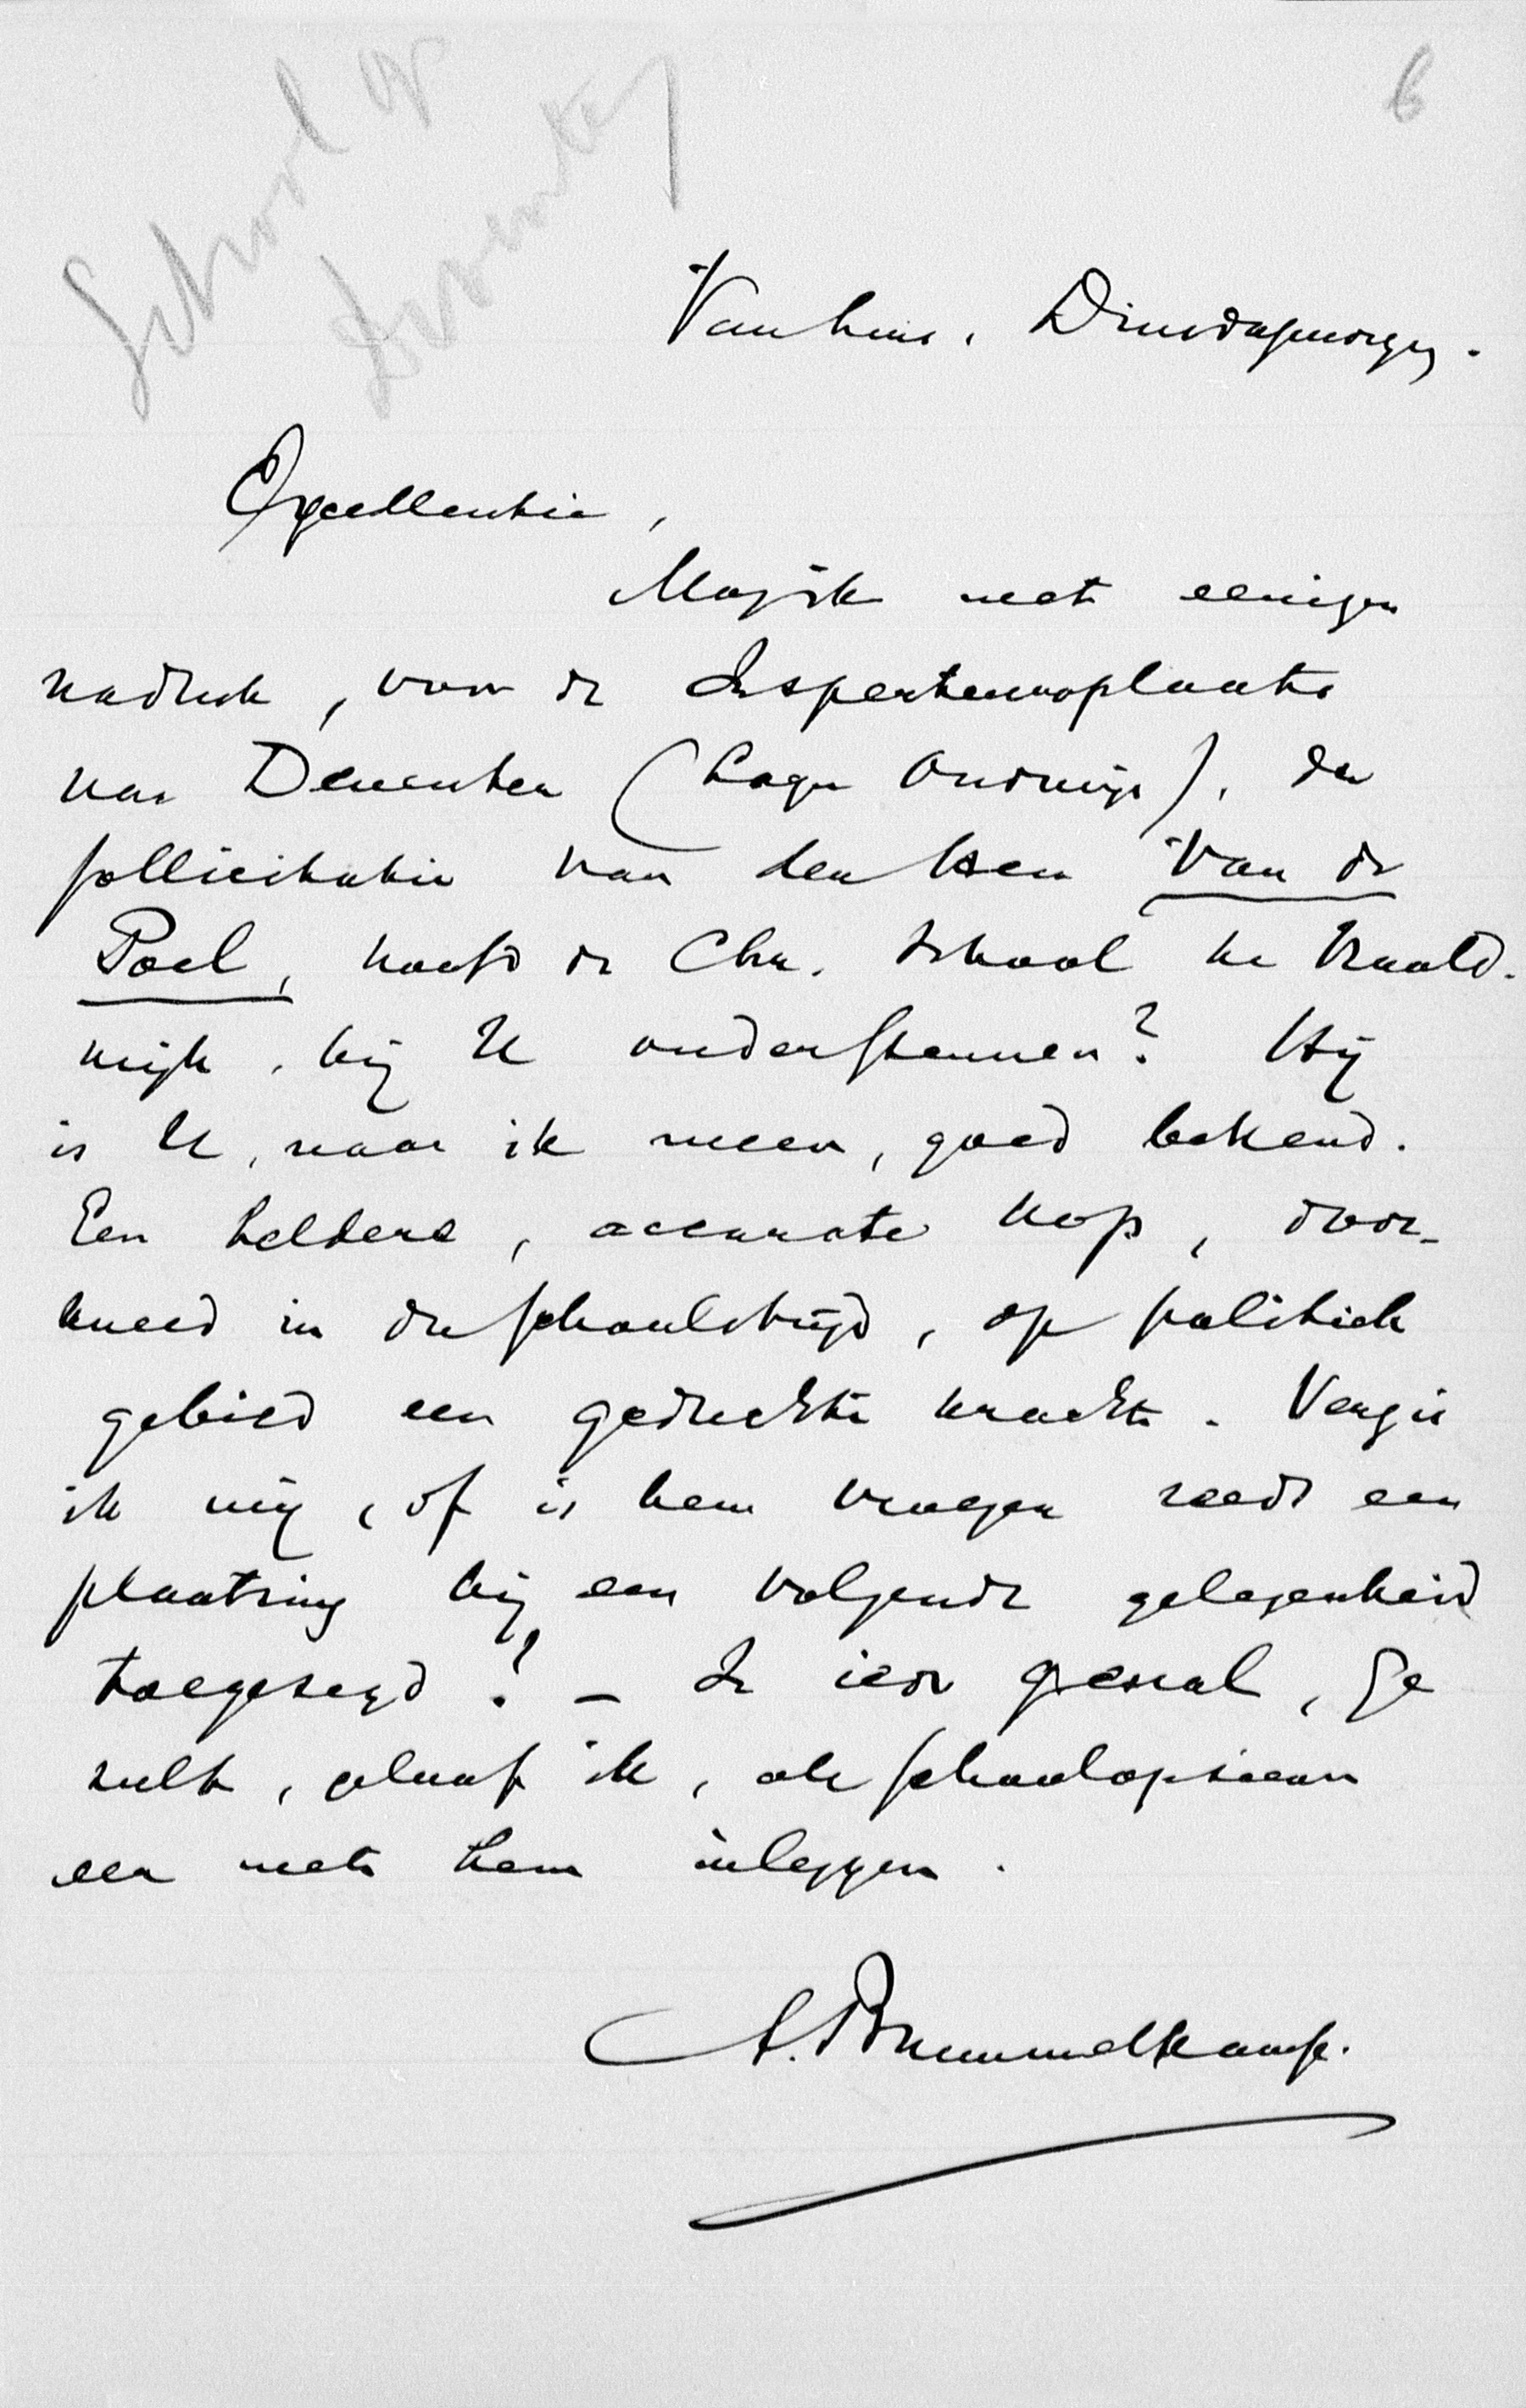 School op
6
Van huis, Dinsdagmorgen.
Excellentie,
Mag ik met eenigen
nadruk, voor de Inspecteursplaats
van Deventer (Lager Onderwijs), de
sollicitatie van den Heer Van de
Poel, hoofd der Chr. School te Waald-
wijk, bij U ondersteunen? Hij
is U, naar ik meen, goed bekend.
Een heldere, accurate kop, door-
kneed in den schoolstrijd, op politiek
gebied een geduchte kracht. Vergis
ik mij, of is hem vroeger reeds een
plaatsing bij een volgende gelegenheid
toegezegd? – In ieder geval, Ge
zult, geloof ik, als schoolopziener
eer met hem inleggen.
A. Brummelkamp.